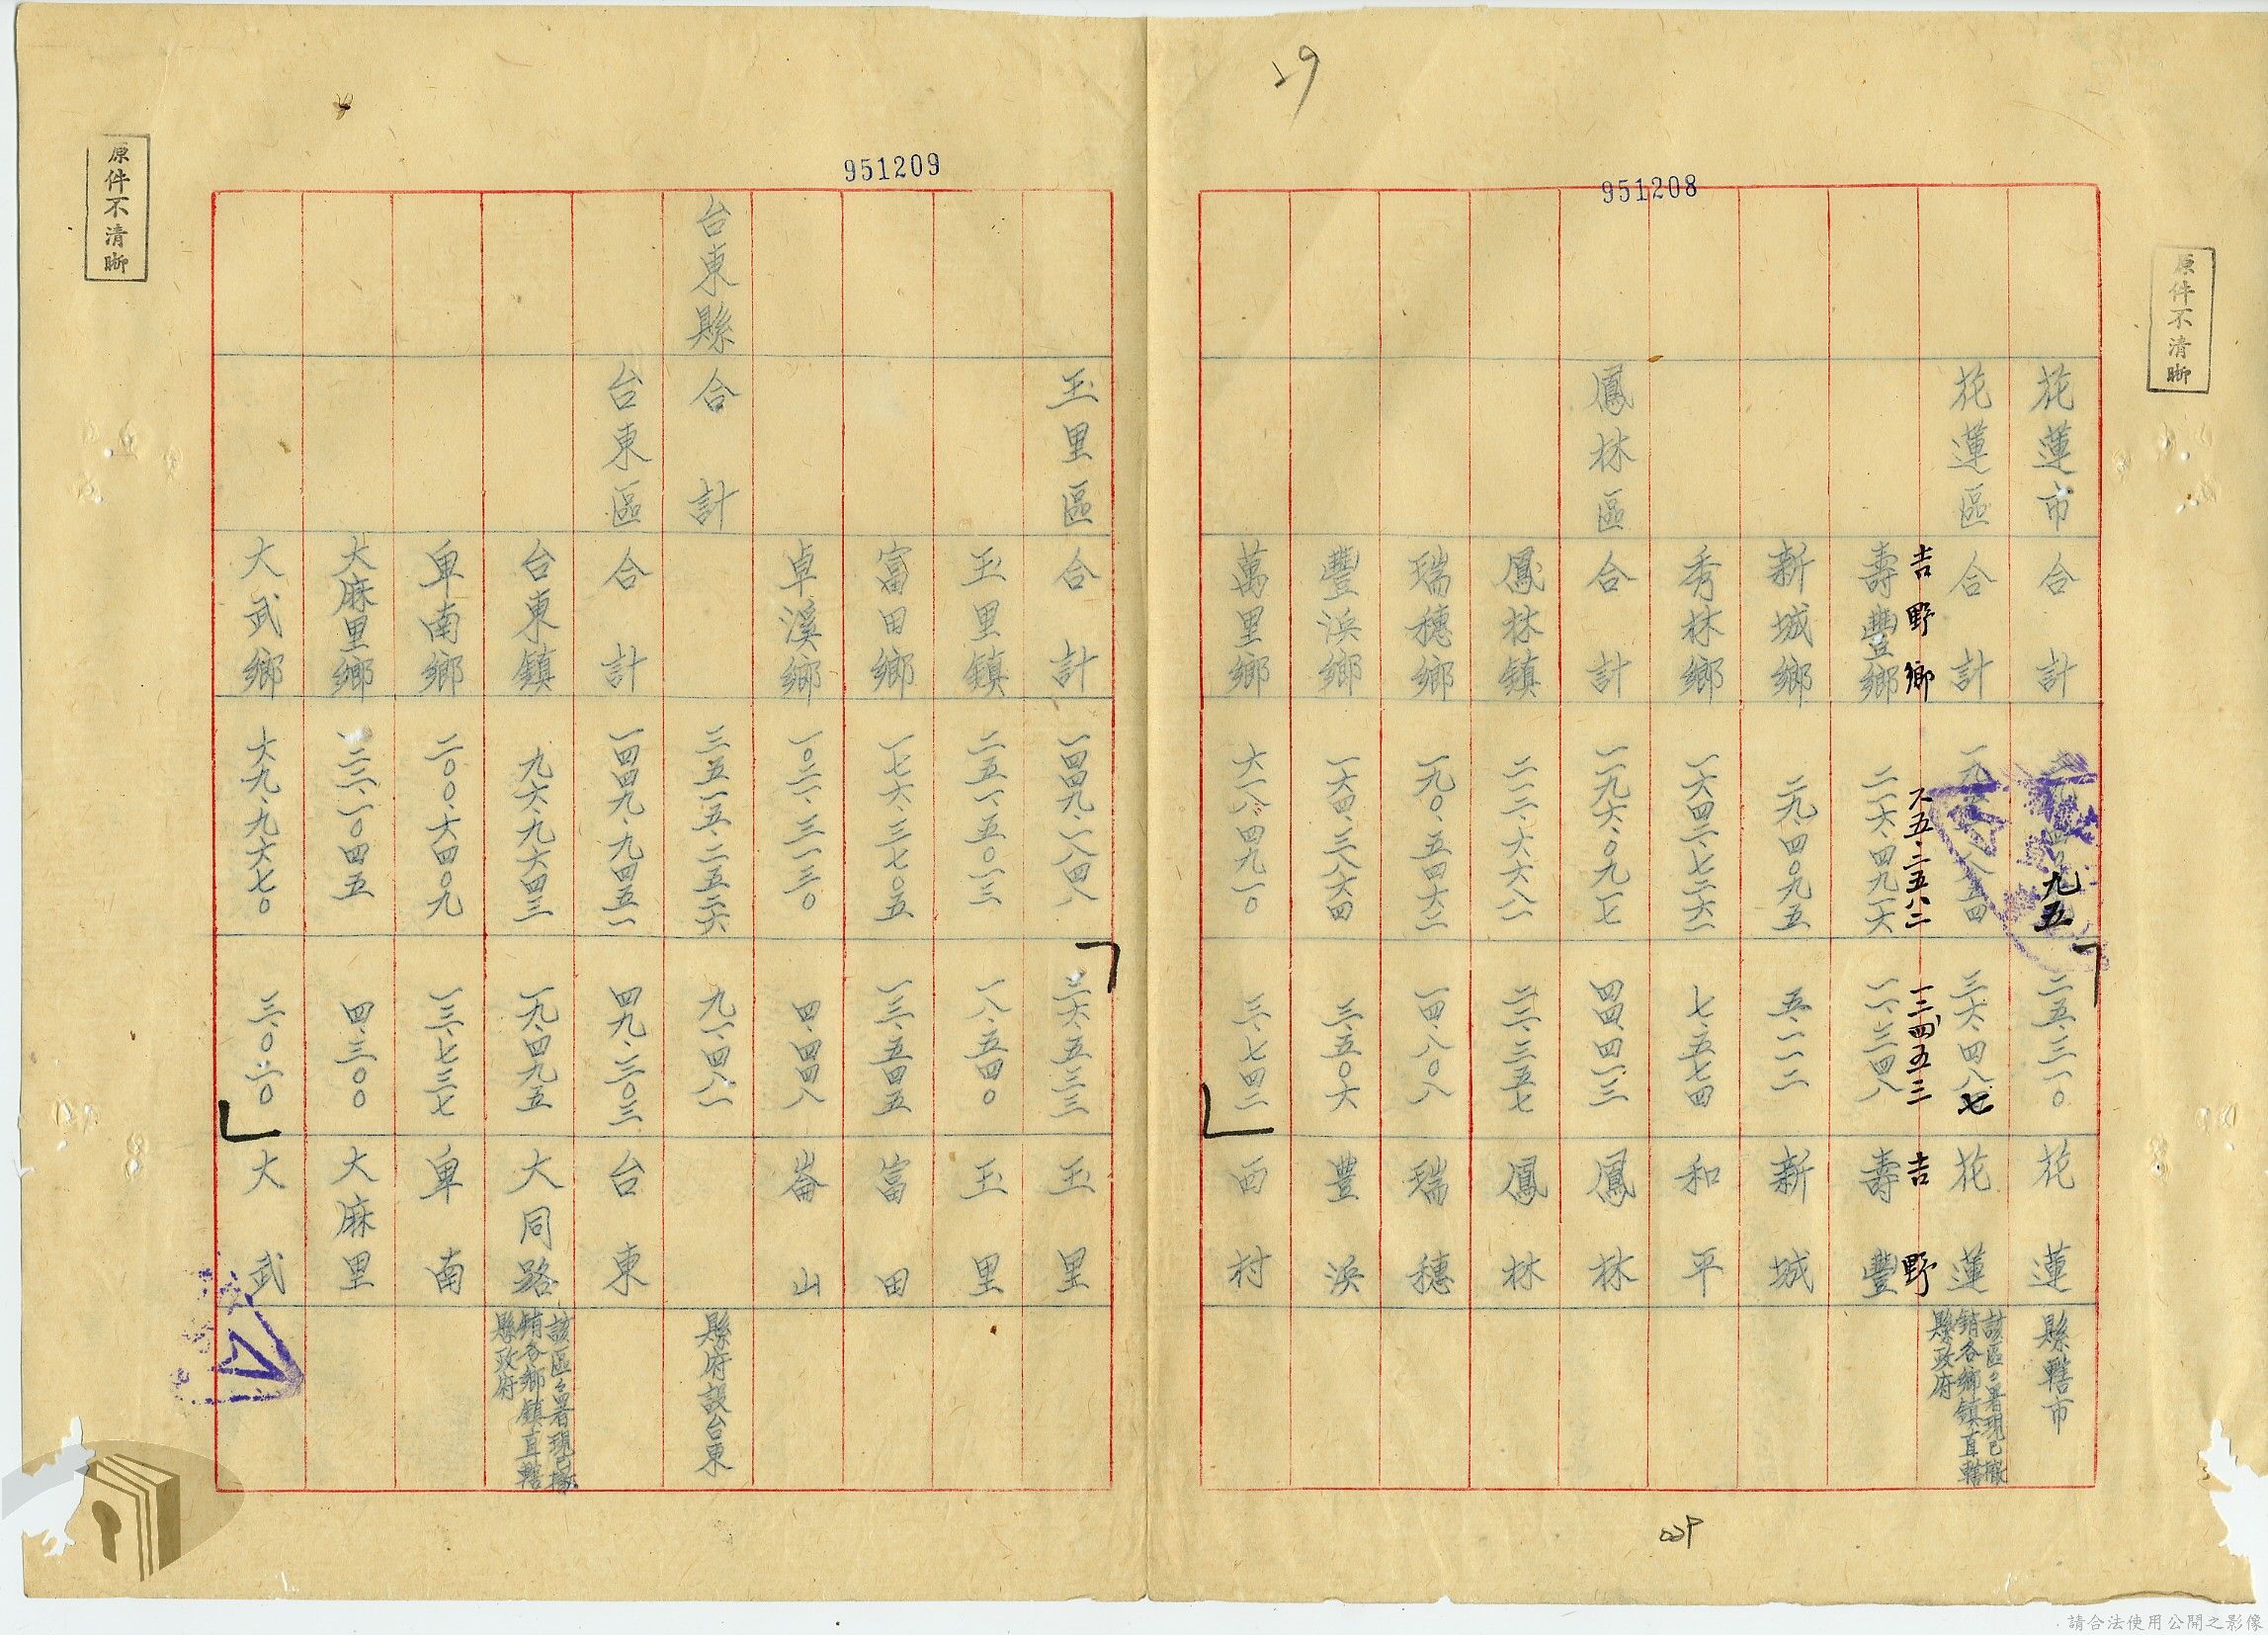 29
951208
原件不清晰
花蓮市 合計 九五 二五、三一〇 花蓮 縣轄市
花蓮區 合計 三六、四八七 花蓮 該區區署現已撤
銷各鄉鎮直轄
縣政府
吉野鄉 一三、四五三 吉野
壽豐鄉 二一六、四九一六 一一、三四八 壽豐
新城鄉 二九、四〇九五 五、一一二 新城
秀林鄉 一六四二、七二六一 七、五七四 和平
鳳林區 合計 一一九六、〇九一七 四四、四一三 鳳林
鳳林鎮 二一二、六六八一 二二、三五七 鳳林
瑞穗鄉 一九〇、五四六二 一四、八〇八 瑞穗
豐浜鄉 一六四、三八六四 三、五〇六 豐浜
萬里鄉 六一八、四九一〇 三、七四二 西村
951209
玉里區 合計 一四四九、一八四八 三六、五三三 玉里
玉里鎮 二五一、五〇一三 一八、五四〇 玉里
富田鄉 一七六、三七〇五 一三、五四五 富田
卓溪鄉 一〇二一、三一三〇 四、四四八 崙山
台東縣 合計 三五一五、二五二六 九一、四八一 縣府設台東
台東區 合計 一四四九、九四五一 四九、二〇三 台東
台東鎮 九六、九六四三 一九、四九五 大同路 該區區署現已撤
銷各鄉鎮直轄
縣政府
卑南鄉 二〇〇、六四〇九 一三、七三七 卑南
大麻里鄉 一〇四五 四、三〇〇 大麻里
大武鄉 六九、九六七〇 三、〇二〇 大武
原件不清晰
請合法使用公開之影像